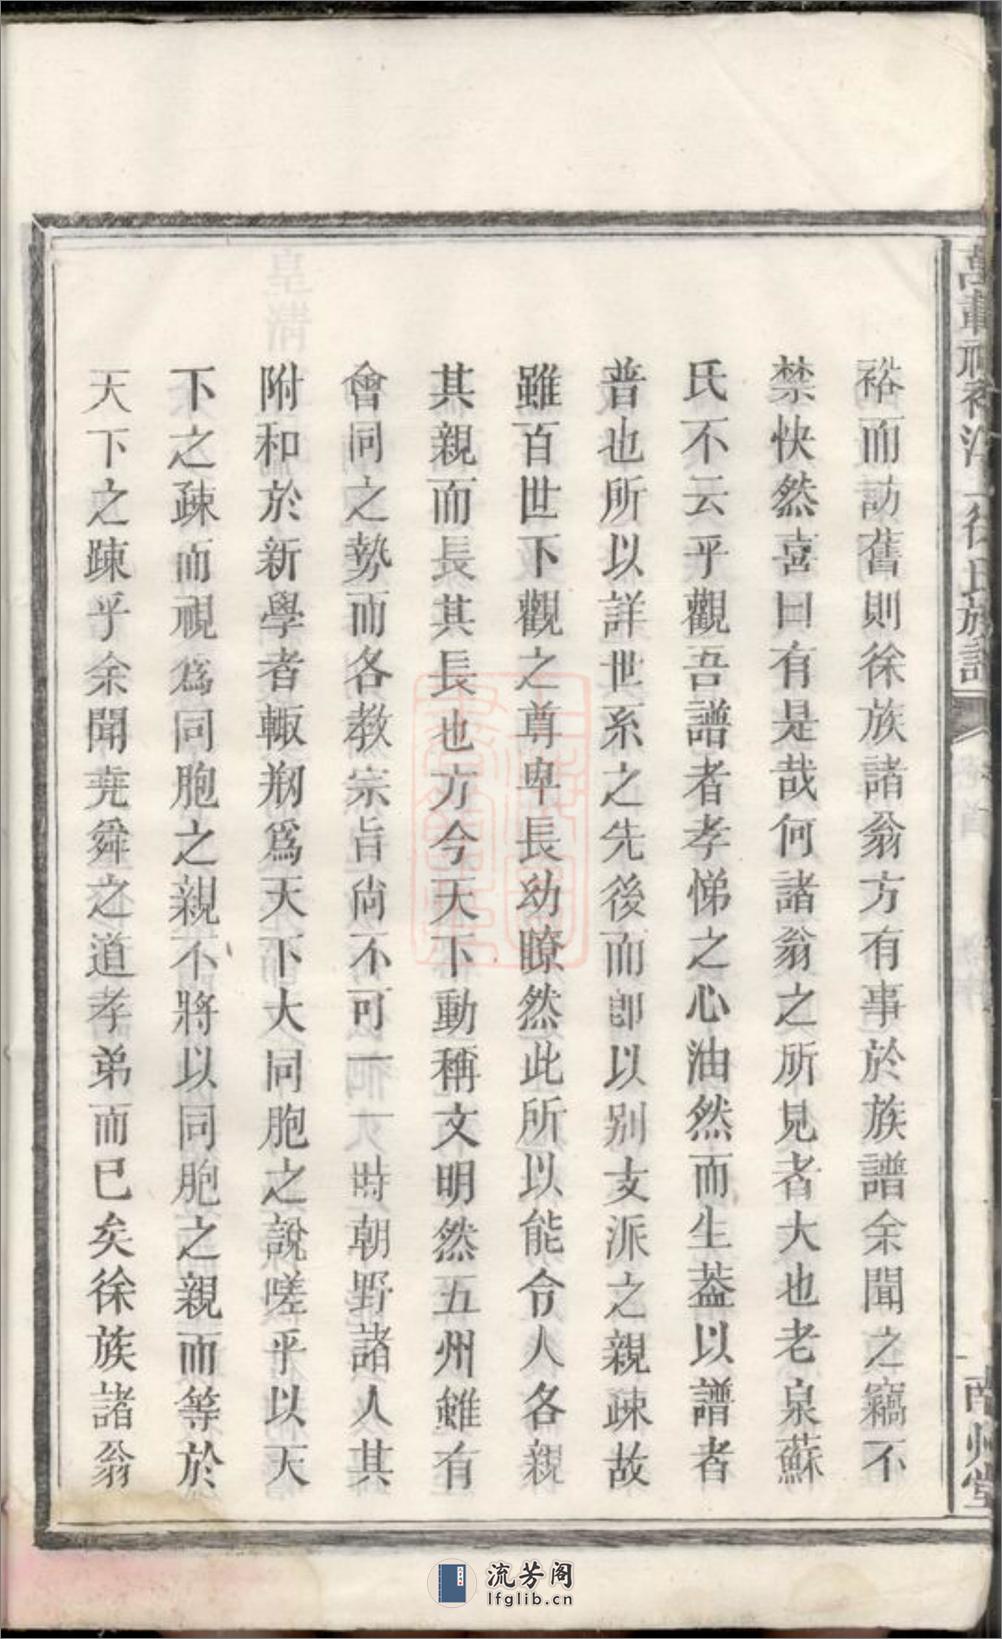 裕而訪舊則徐族諸翁方有事於族譜余聞之竊不
禁快然喜曰有是哉何諸翁之所見者大也老泉蘇
氏不云乎觀吾譜者孝悌之心油然而生葢以譜者
普也所以詳世系之先後而卽以別支派之親疎故
雖百世下觀之尊卑長幼瞭然此所以能令人各親
其親而長其長也方今天下動稱文明然五州雖有
會同之勢而各教宗旨尙不可一
時朝野諸人其
附和於新學者輙剏爲天下大同胞之說嗟乎以天
下之疎而視爲同胞之親不將以同胞之親而等於
天下之踈乎余聞堯舜之道孝弟而已矣徐族諸翁
徐氏族譜
南州堂
流芳阁
lfglib.cn